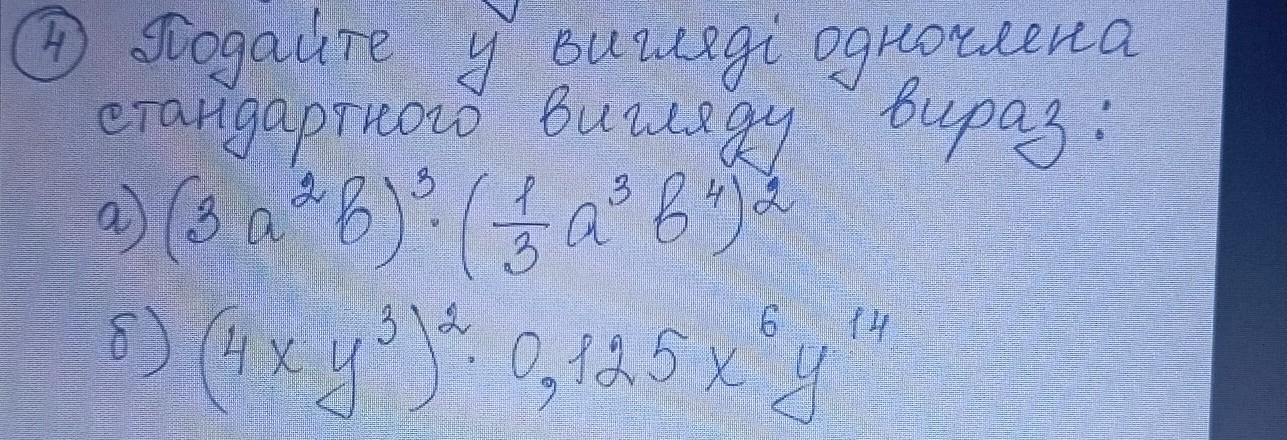 ④ Подайте у вигляді одночлена
стандартного вигляду вираз:
а) (3a²b)³·(1/3 a³b⁴)²
б) (4xy³)²·0,125x⁶y¹⁴